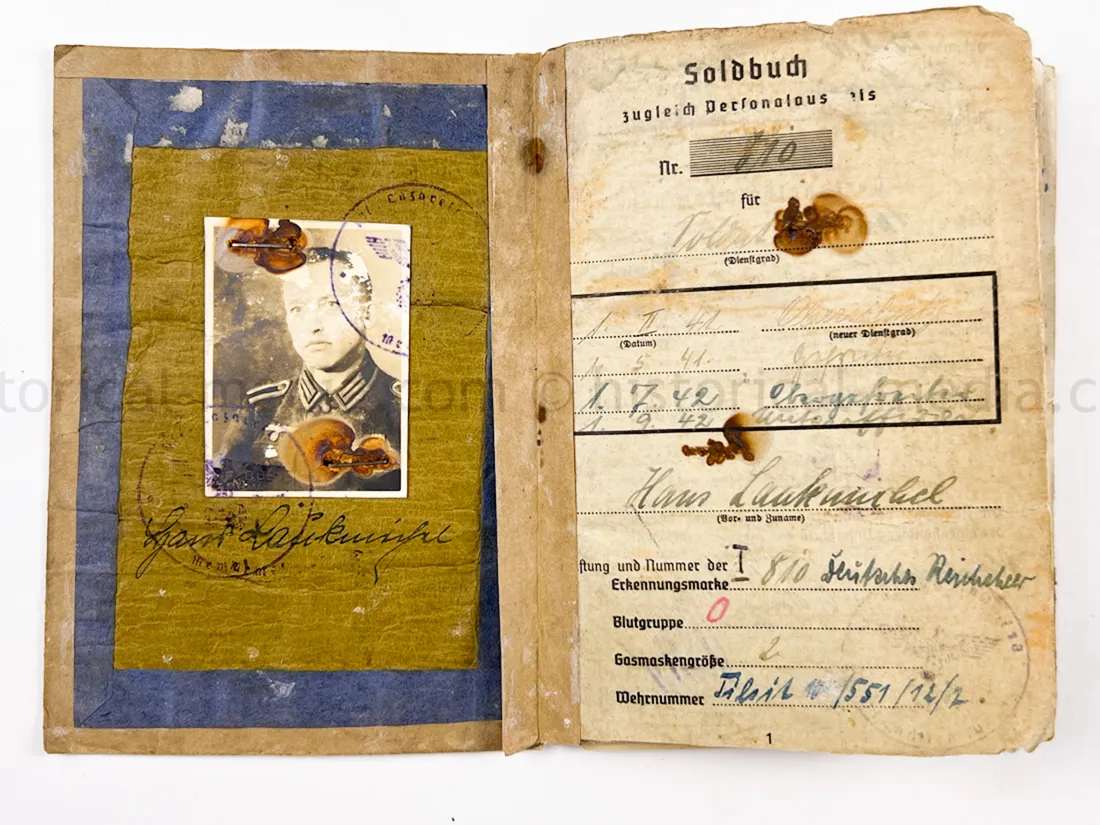 Lazarett
Hans Laukmichel
Soldbuch
zugleich Personalaus eis
Nr. 810
für
(Dienstgrad)
1. II 41.
(Datum)
(neuer Dienstgrad)
1. 5. 41.
1. 7. 42 Obergefreiter
1. 9. 42 Unteroffizier
Hans Laukmichel
(Vor- und Zuname)
ftung und Nummer der
Erkennungsmarke I 810 Deutsches Reichsheer
Blutgruppe O
Gasmaskengröße 2
Wehrnummer Tilsit /551/12/2
1
historical-media.c